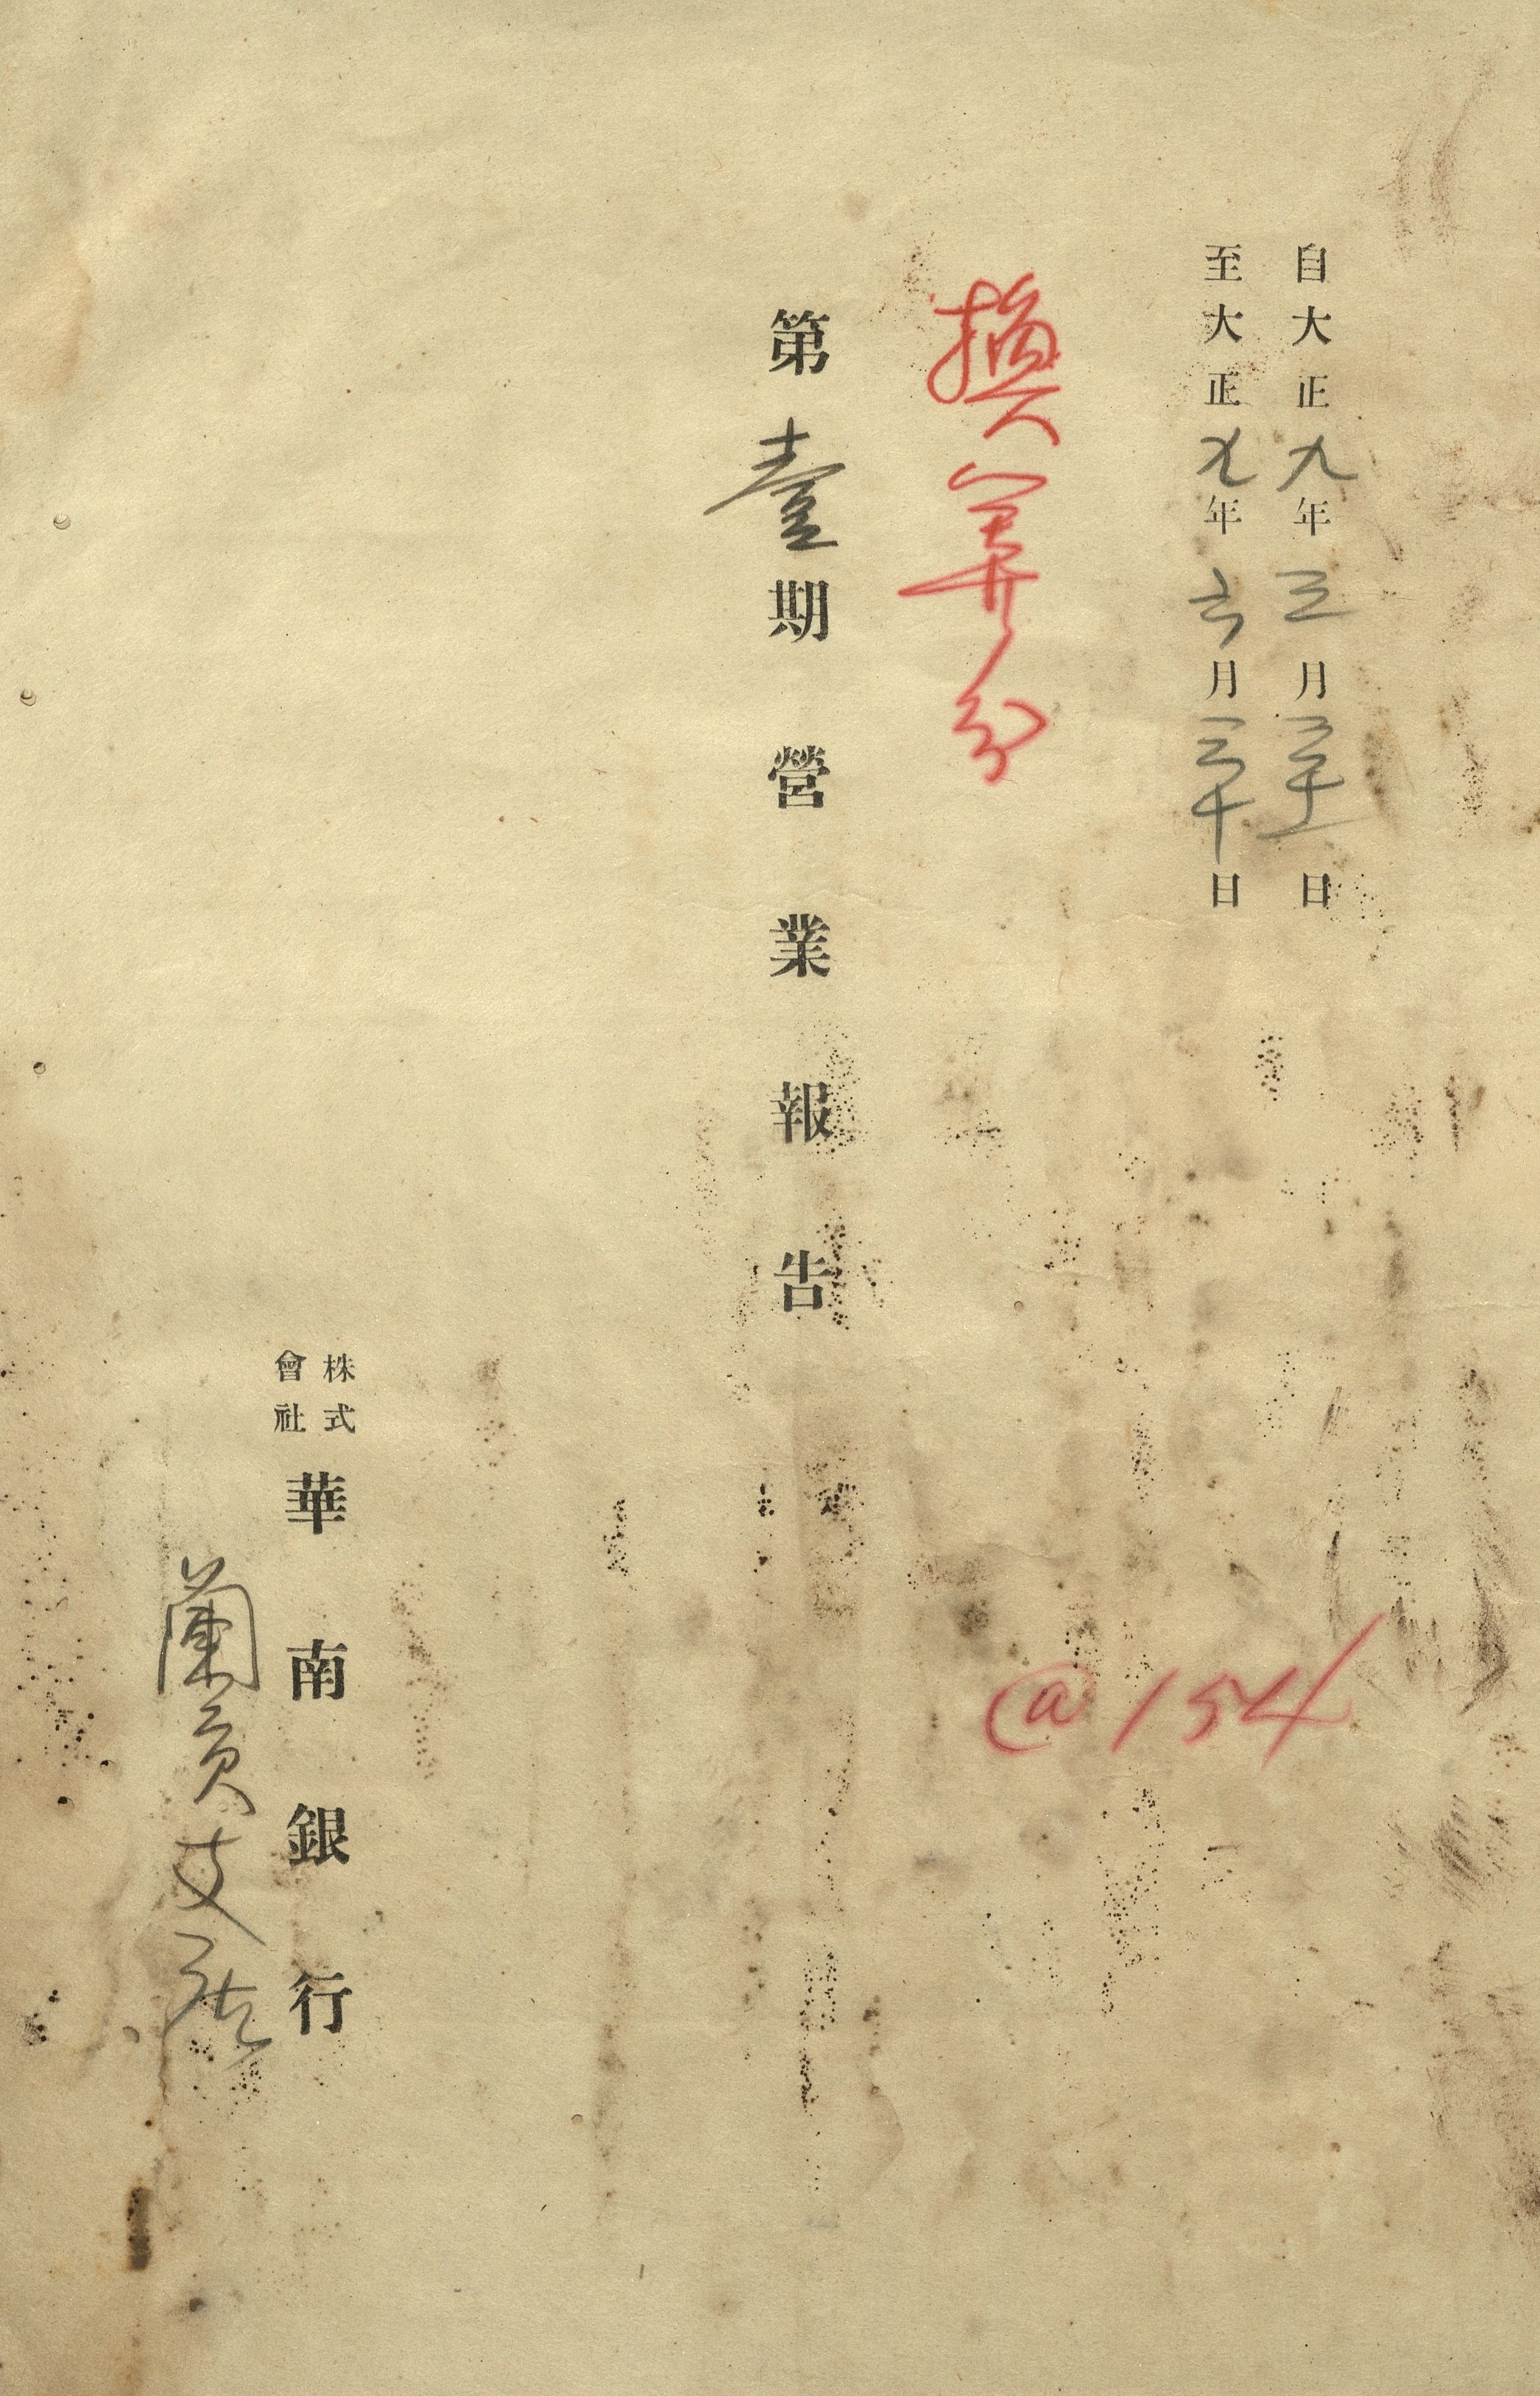 自大正九年三月三十一日
至大正九年六月三十日
換算分
@154
第壹期營業報告
株式會社華南銀行
蘭貢支店